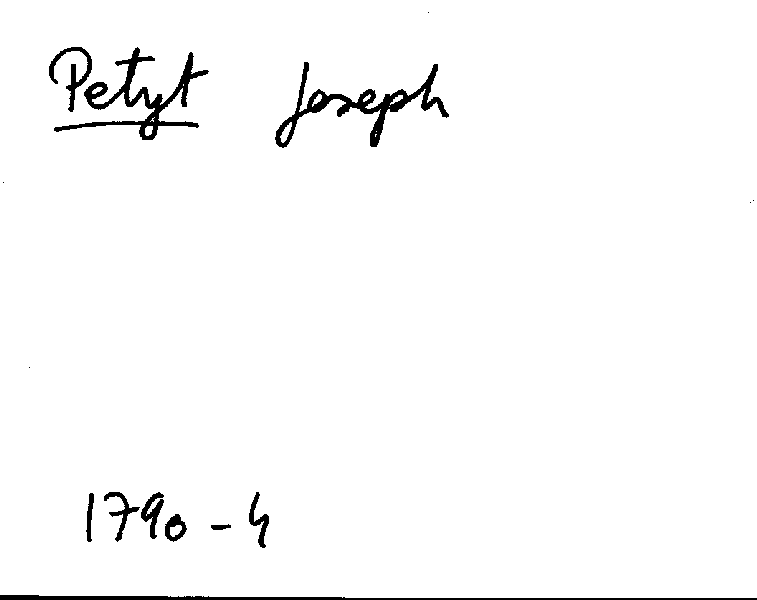 Petyt Joseph
1790 - 4